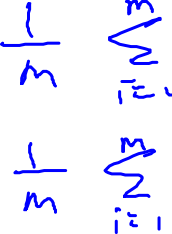 1/m ∑_{i=1}^{m}
1/m ∑_{i=1}^{m}